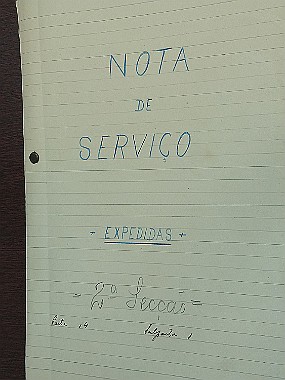 NOTA
DE
SERVIÇO
- EXPEDIDAS -
- 2ª Secção -